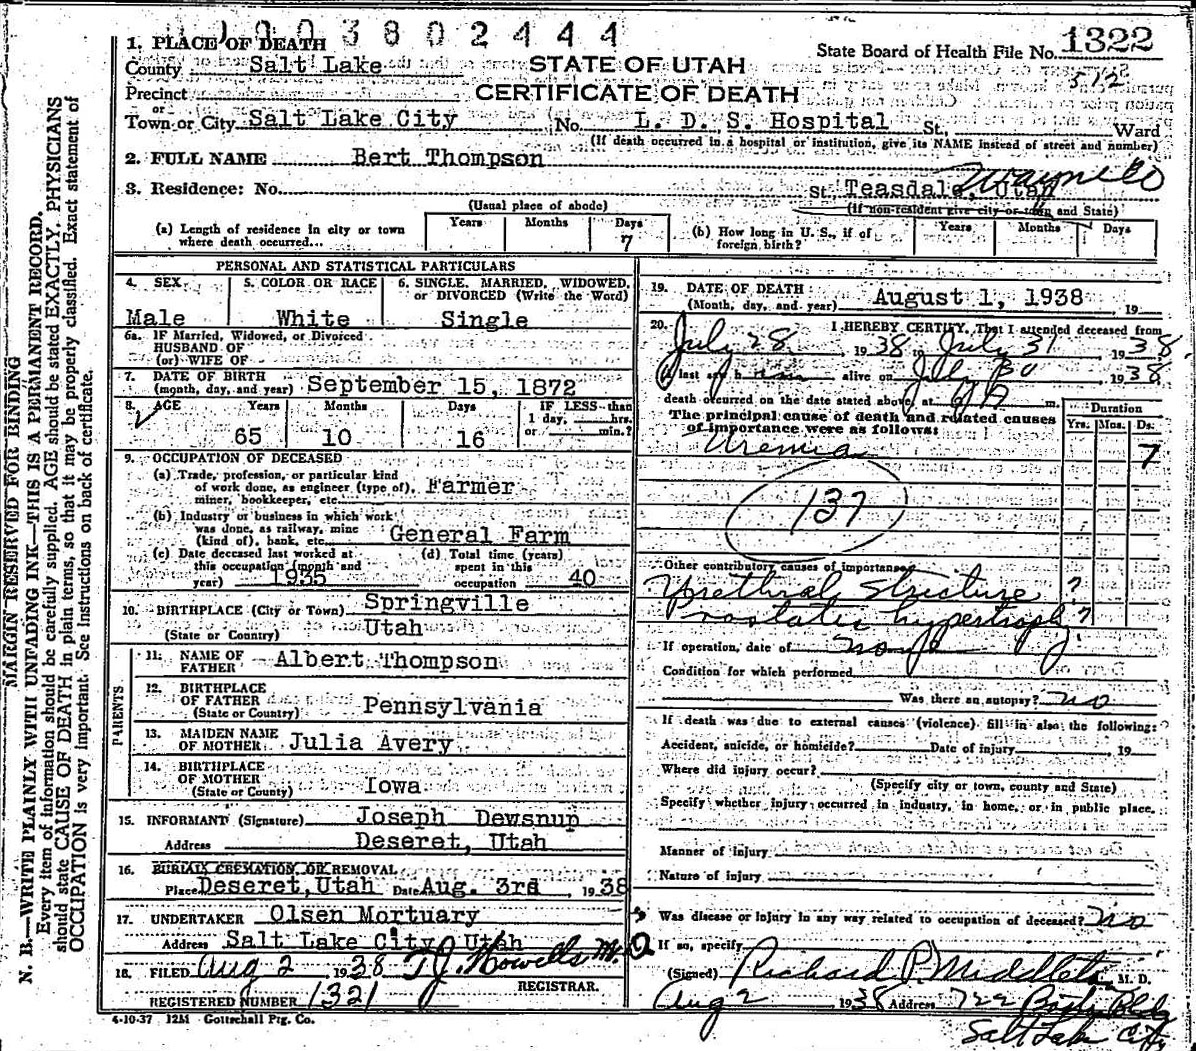 1 9 0 3 8 0 2 4 4 4
1. PLACE OF DEATH
County Salt Lake
STATE OF UTAH
State Board of Health File No. 1322
512
Precinct
CERTIFICATE OF DEATH
or
Town or City Salt Lake City No. L. D. S. Hospital St., Ward
(If death occurred in a hospital or institution, give its NAME instead of street and number)
2. FULL NAME Bert Thompson
3. Residence: No. St. Teasdale, Utah Wayne Co
(Usual place of abode) (If non-resident give city or town and State)
(a) Length of residence in city or town where death occurred... Years Months Days 7
(b) How long in U. S., if of foreign birth? Years Months Days
PERSONAL AND STATISTICAL PARTICULARS
4. SEX Male
5. COLOR OR RACE White
6. SINGLE, MARRIED, WIDOWED, or DIVORCED (Write the Word) Single
6a. IF Married, Widowed, or Divorced
HUSBAND OF
(or) WIFE OF
7. DATE OF BIRTH
(month, day, and year) September 15, 1872
8. AGE Years 65 Months 10 Days 16
IF LESS than
1 day, hrs.
or min.?
9. OCCUPATION OF DECEASED
(a) Trade, profession, or particular kind
of work done, as engineer (type of), Farmer
miner, bookkeeper, etc.
(b) Industry or business in which work
was done, as railway, mine
(kind of), bank, etc. General Farm
(c) Date deceased last worked at this occupation (month and year) 1935
(d) Total time (years) spent in this occupation 40
10. BIRTHPLACE (City or Town) Springville
(State or Country) Utah
PARENTS
11. NAME OF FATHER Albert Thompson
12. BIRTHPLACE OF FATHER
(State or Country) Pennsylvania
13. MAIDEN NAME OF MOTHER Julia Avery
14. BIRTHPLACE OF MOTHER
(State or Country) Iowa
15. INFORMANT (Signature) Joseph Dewsnup
Address Deseret, Utah
16. BURIAL CREMATION, OR REMOVAL
Place Deseret, Utah Date Aug. 3rd, 1938
17. UNDERTAKER Olsen Mortuary
Address Salt Lake City Utah
18. FILED Aug 2 1938 T J. Howells M. D
REGISTRAR.
REGISTERED NUMBER 1321
4-10-37 12M Gottschall Ptg. Co.
19. DATE OF DEATH
(Month, day, and year) August 1, 1938, 19
20. I HEREBY CERTIFY, That I attended deceased from
July 28 1938 to July 31 1938
I last saw him alive on July 30 1938
death occurred on the date stated above, at 6 A m.
The principal cause of death and related causes
of importance were as follows:
Duration
Yrs. Mos. Ds.
Uremia 7
137
Other contributory causes of importance:
Urethral Stricture ?
Prostatic hypertrophy ?
If operation, date of none
Condition for which performed
Was there an autopsy? no
If death was due to external causes (violence) fill in also the following:
Accident, suicide, or homicide? Date of injury, 19
Where did injury occur?
(Specify city or town, county and State)
Specify whether injury occurred in industry, in home, or in public place.
Manner of injury
Nature of injury
Was disease or injury in any way related to occupation of deceased? no
If so, specify
(Signed) Richard P. Middleton M. D.
Aug 2 1938 Address 722 Bldg
Salt Lake City
MARGIN RESERVED FOR BINDING
N. B.—WRITE PLAINLY WITH UNFADING INK—THIS IS A PERMANENT RECORD.
Every item of information should be carefully supplied. AGE should be stated EXACTLY. PHYSICIANS
should state CAUSE OF DEATH in plain terms, so that it may be properly classified. Exact statement of
OCCUPATION is very important. See instructions on back of certificate.